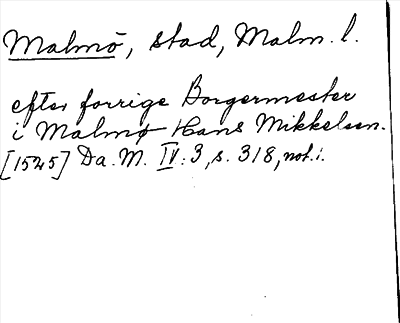 Malmö, stad, Malm. l.
efter forrige Borgermester
i Malmø Hans Mikkelsen.
[1525] Da. M. IV: 3, s. 318, not. i.